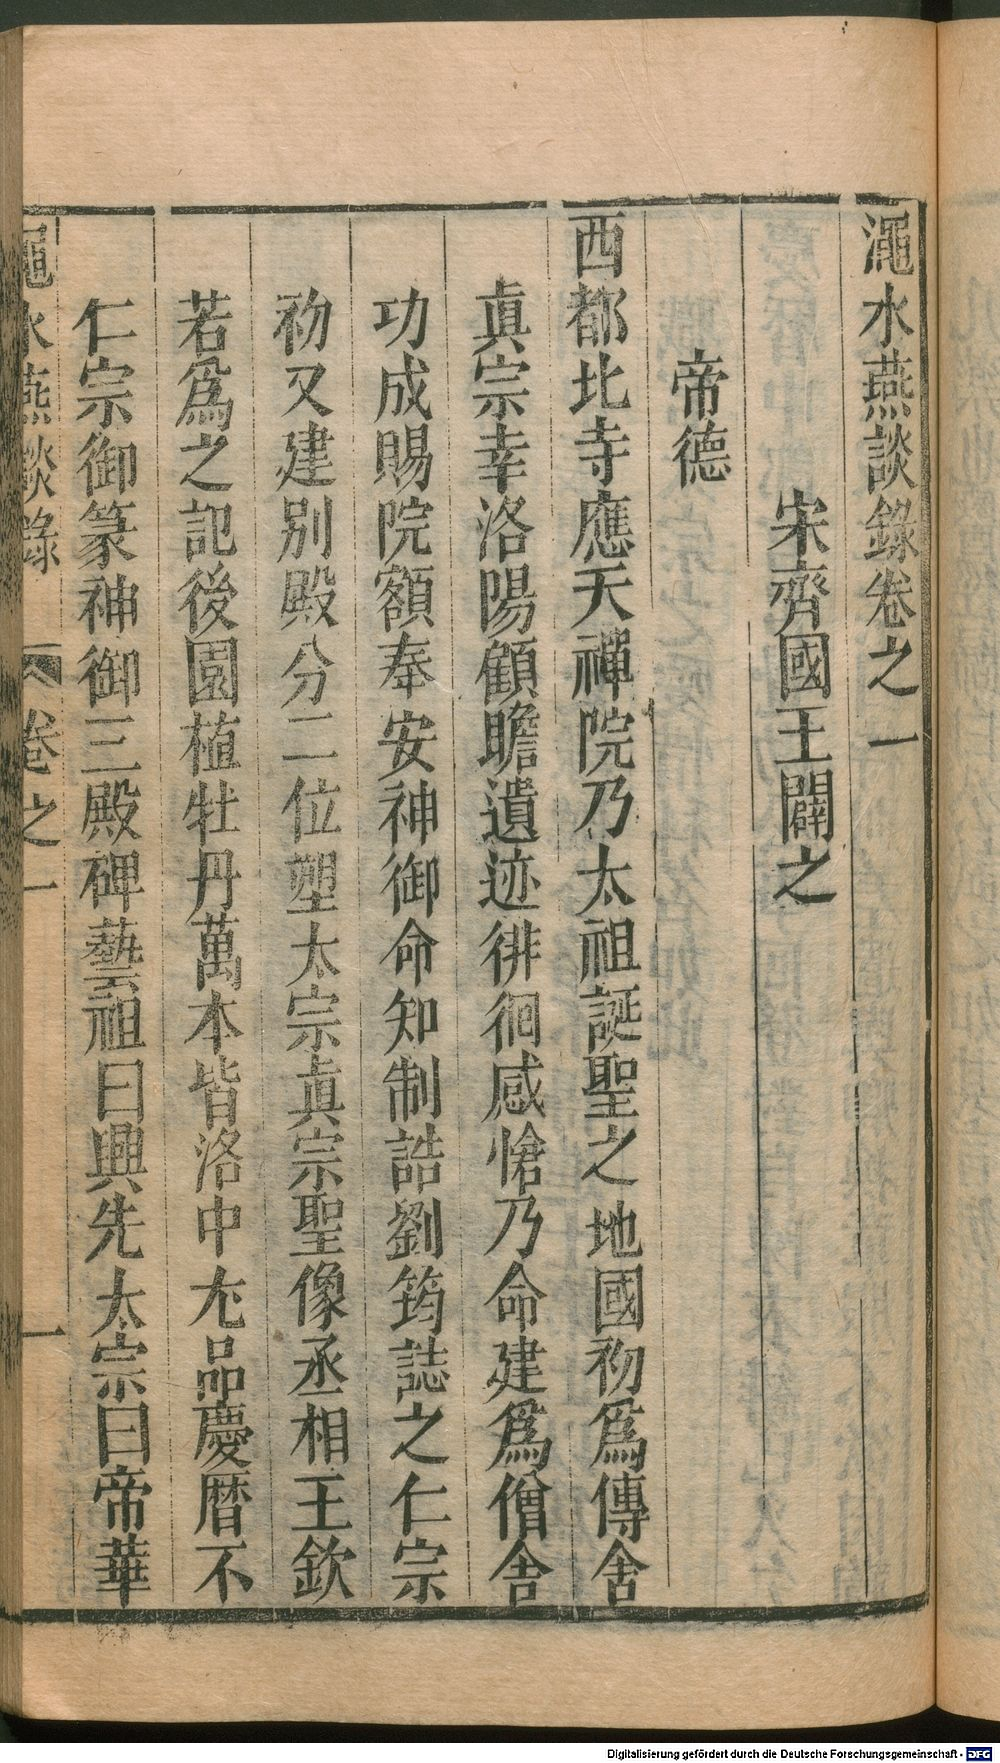 澠水燕談錄卷之一
宋齊國王闢之
帝德
西都北寺應天禪院乃太祖誕聖之地國初爲傳舍
眞宗幸洛陽顧瞻遺迹徘徊感愴乃命建爲僧舍
功成賜院額奉安神御命知制誥劉筠誌之仁宗
初又建別殿分二位塑太宗眞宗聖像丞相王欽
若爲之記後園植牡丹萬本皆洛中尤品慶曆不
仁宗御篆神御三殿碑藝祖曰興先太宗曰帝華
澠水燕談錄 卷之一 一
Digitalisierung gefördert durch die Deutsche Forschungsgemeinschaft - DFG